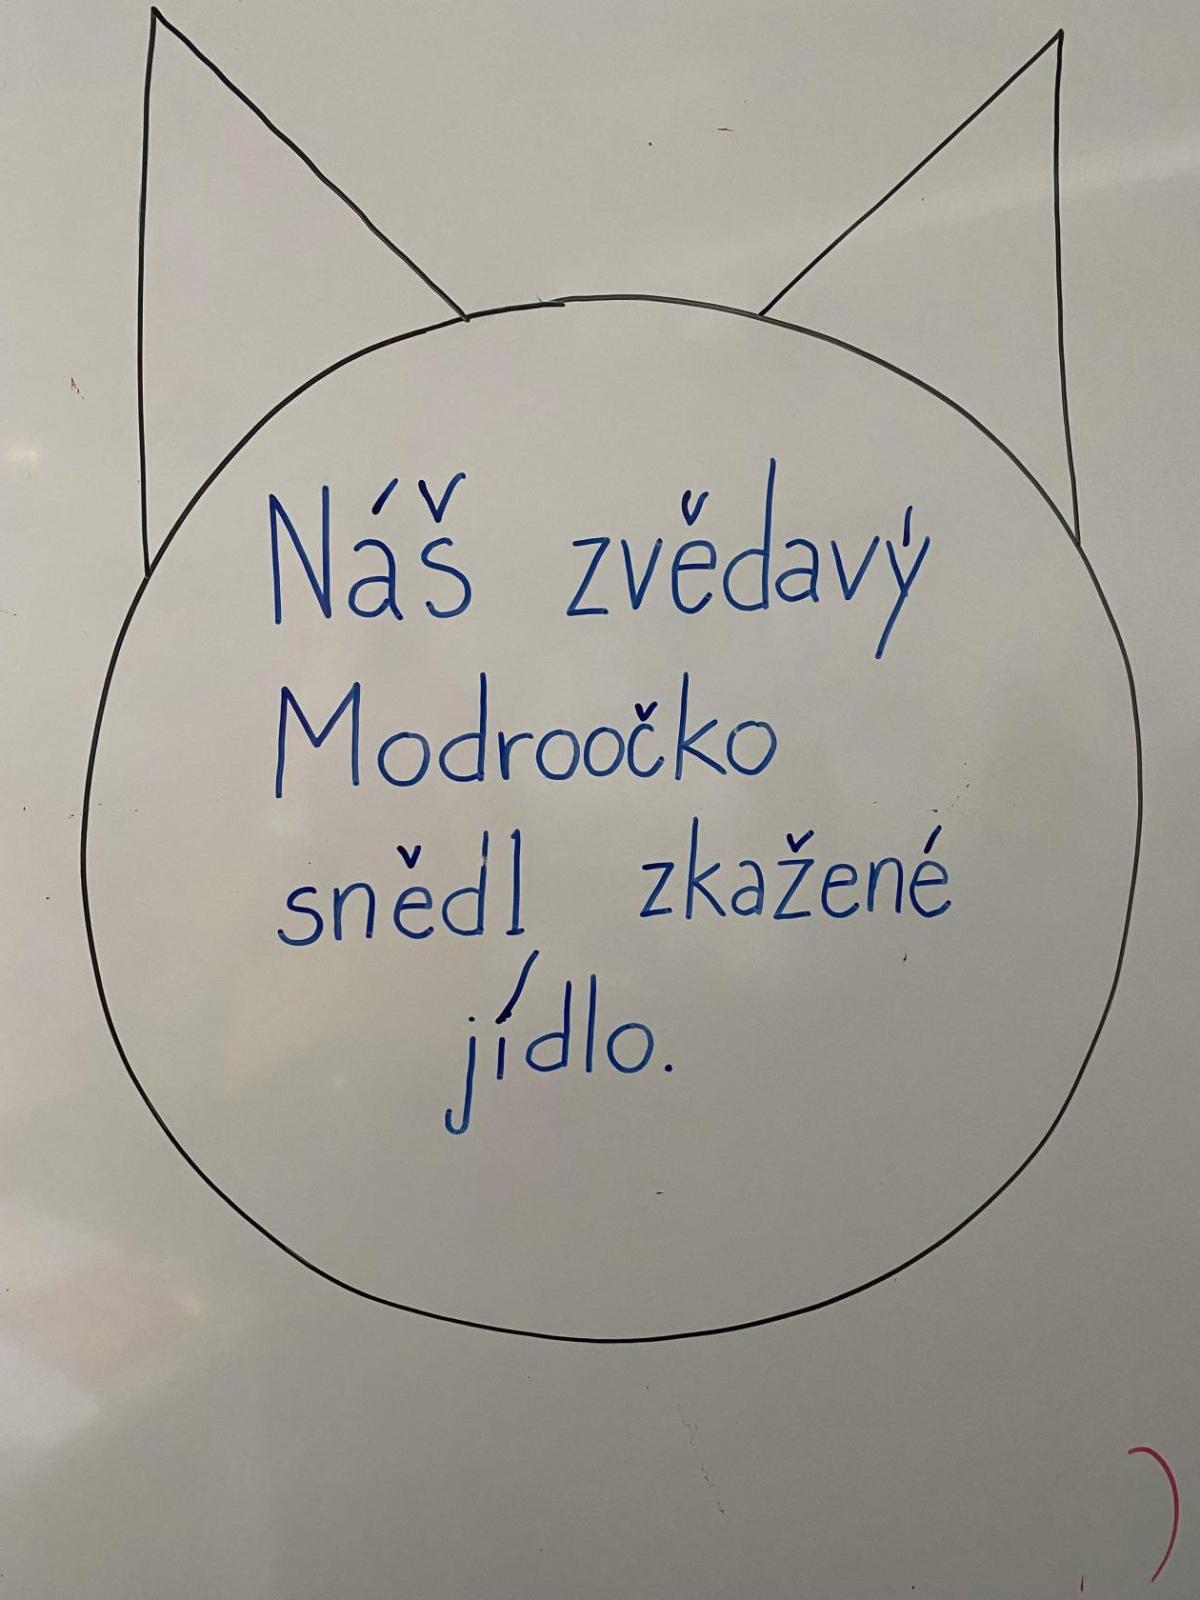 Náš zvědavý
Modroočko
snědl zkažené
jídlo.